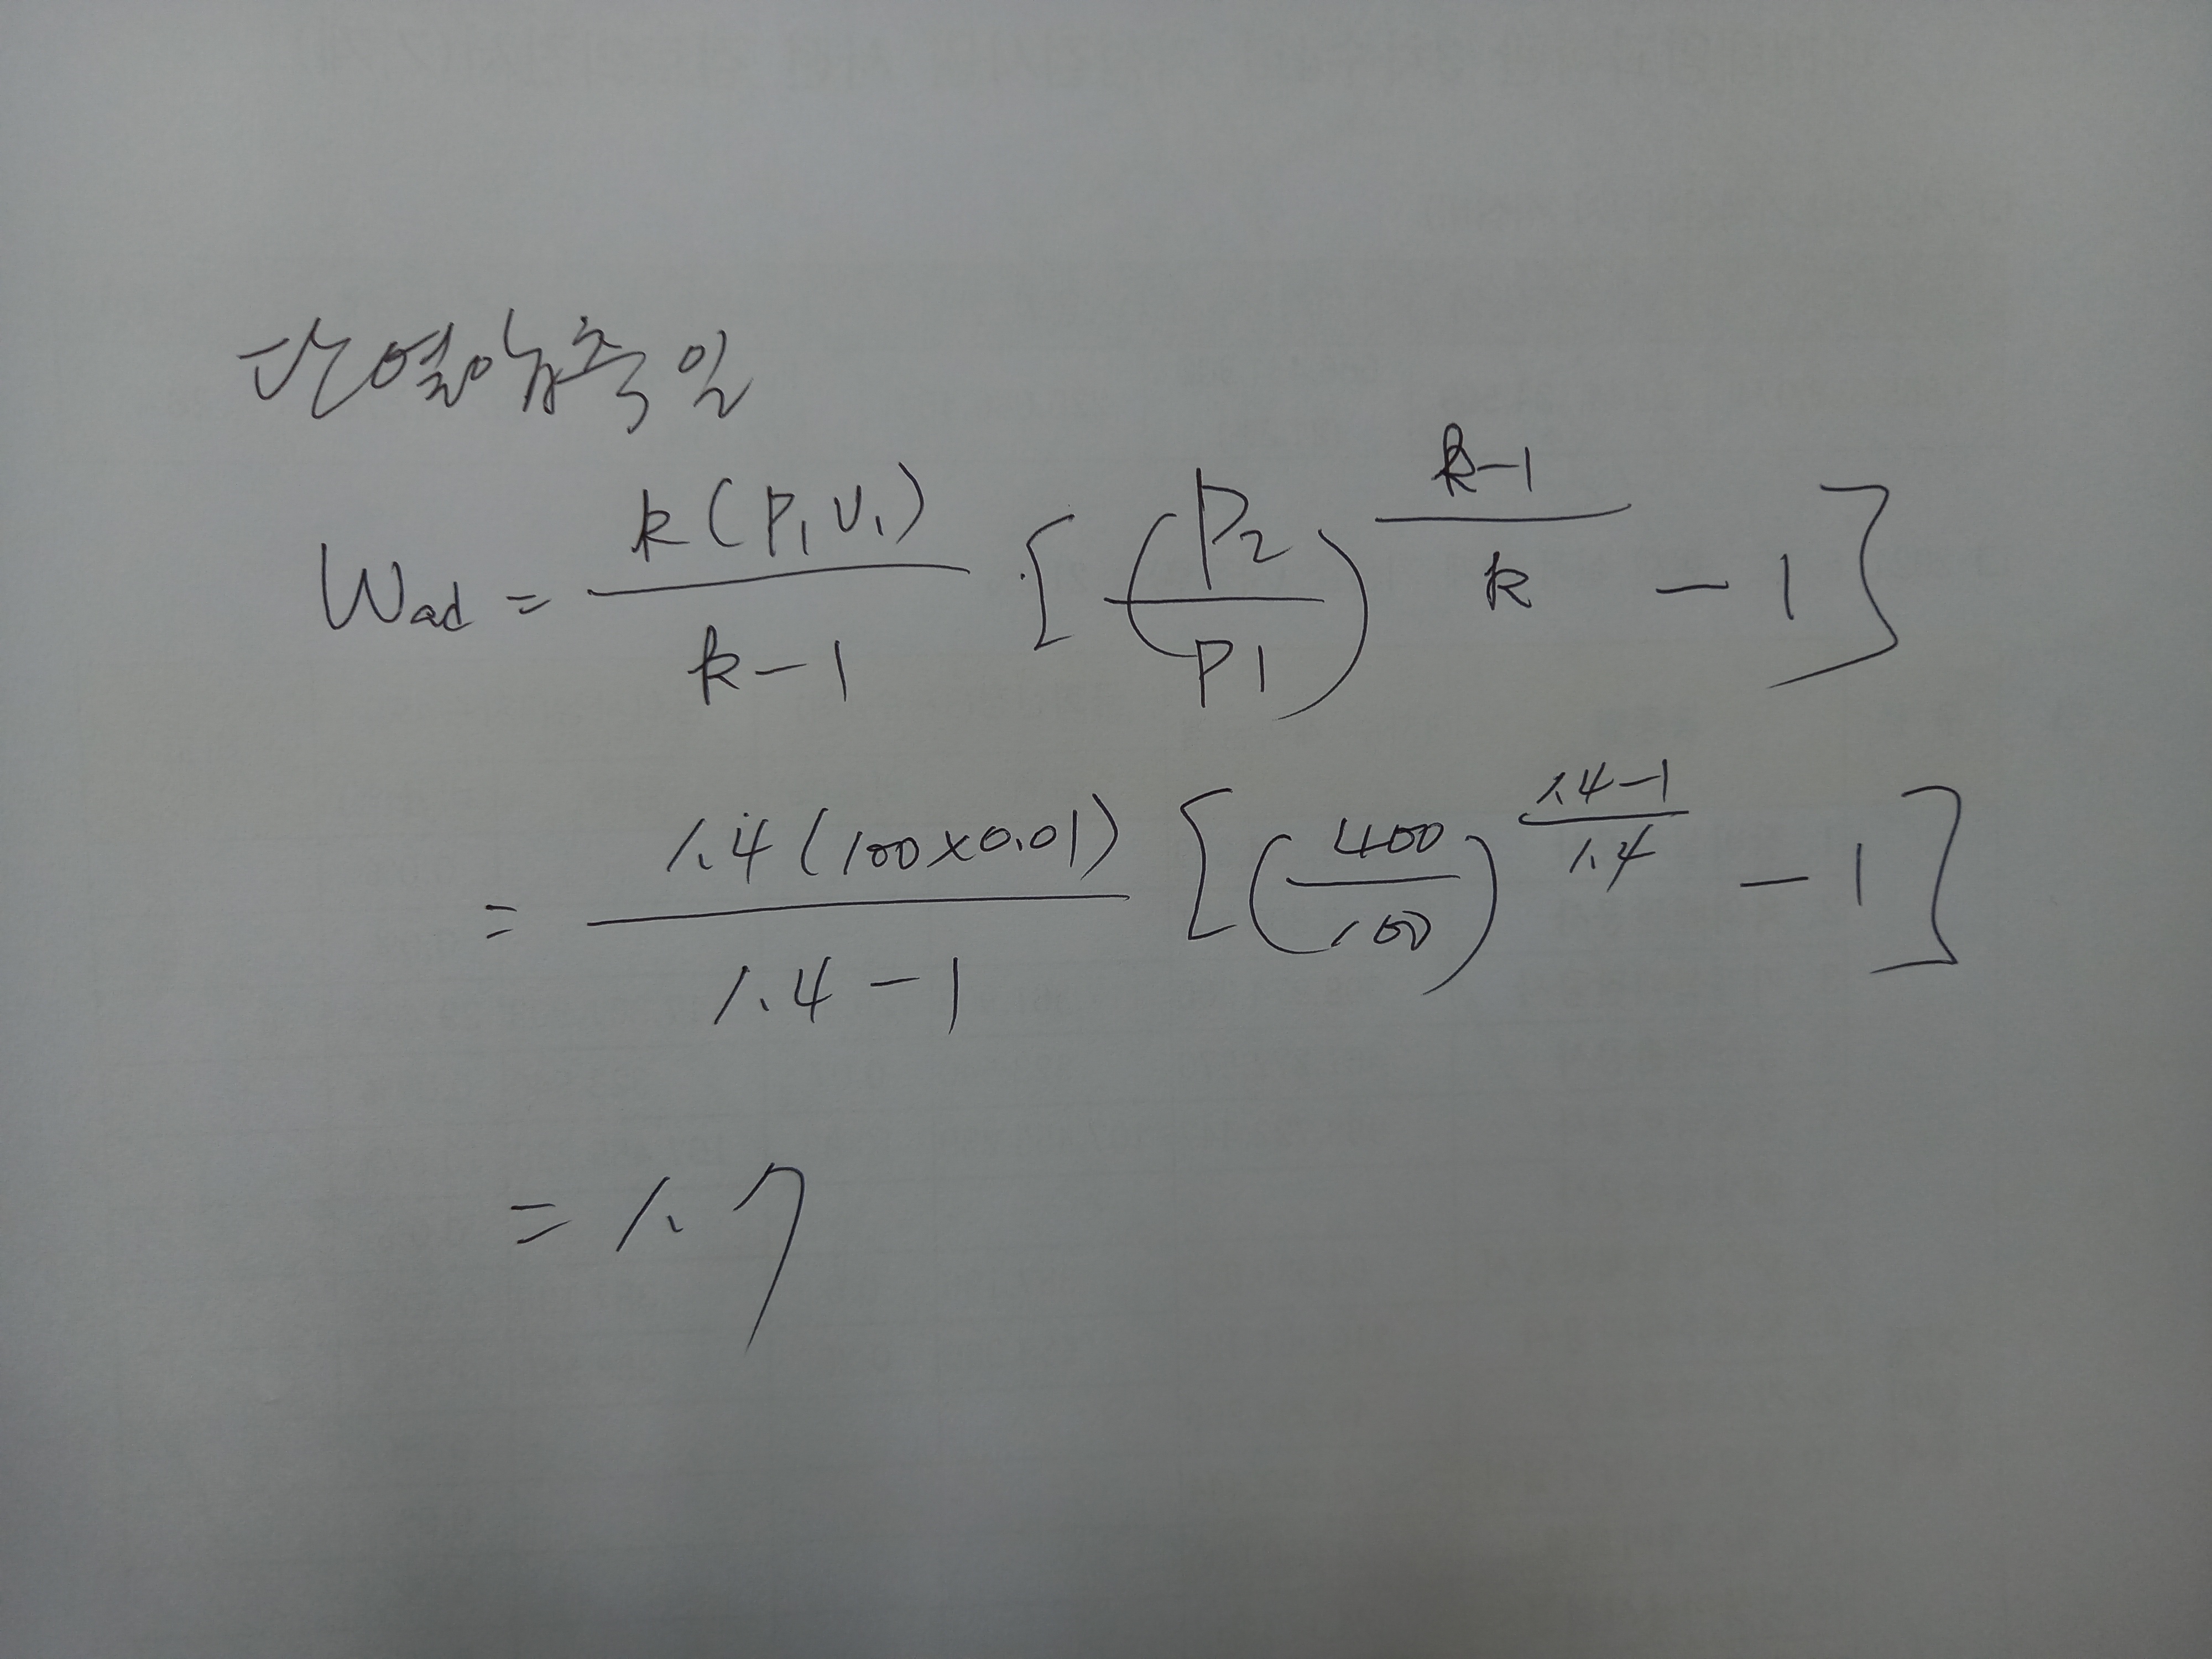 단열압축일
Wad = k(P₁V₁) / k-1 [(P₂/P1)^(k-1/k) - 1]
= 1.4(100×0.01) / 1.4-1 [(400/100)^(1.4-1/1.4) - 1]
= 1.7